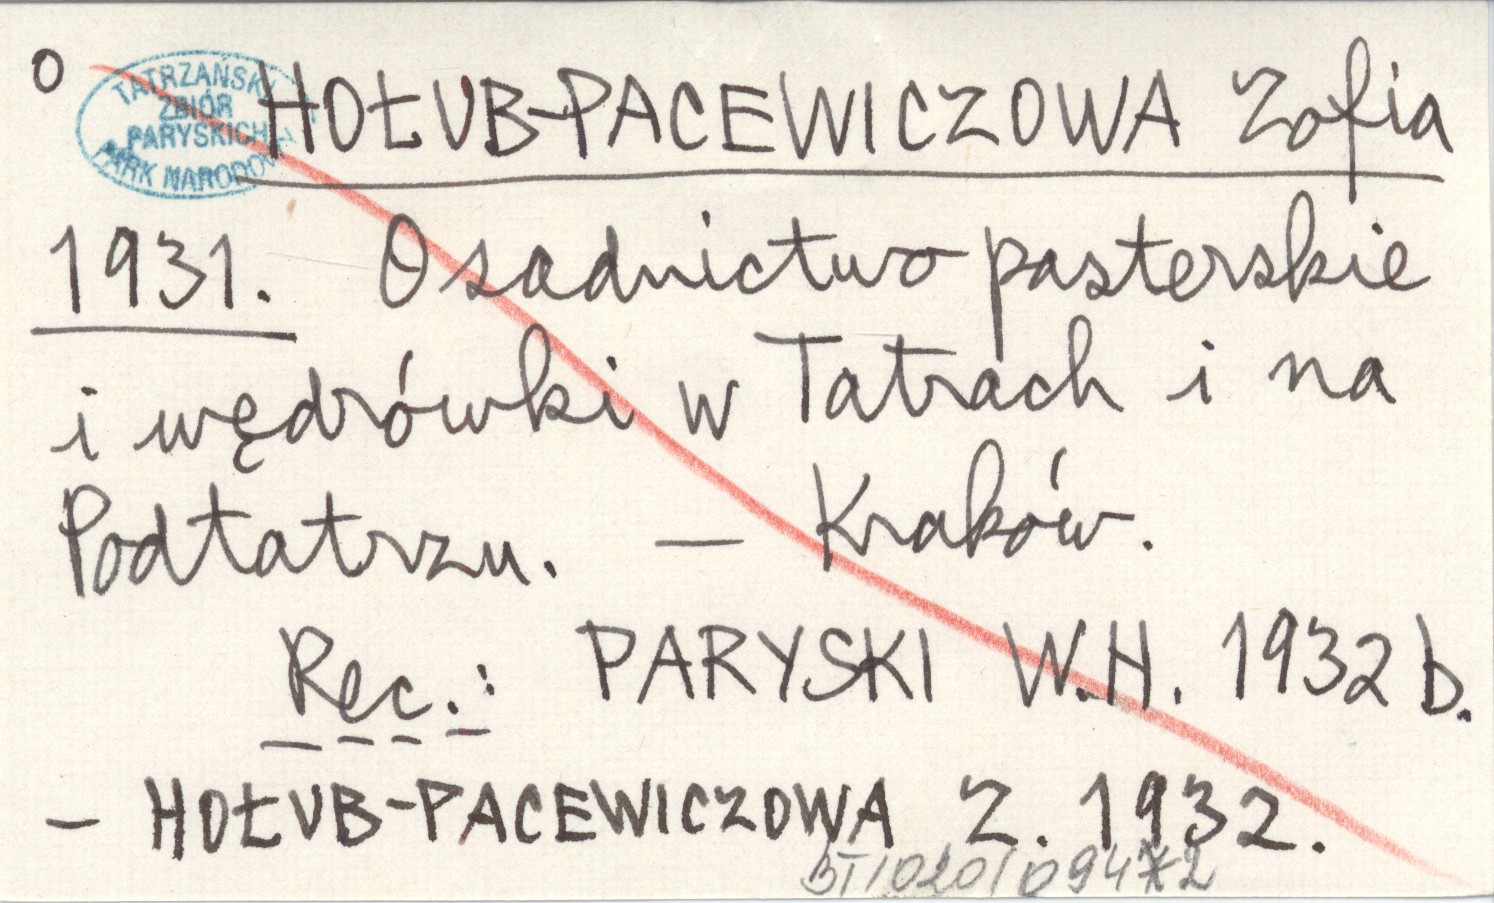 O
TATRZAŃSKI
ZBIÓR
PARYSKICH
PARK NARODOWY
HOŁUB-PACEWICZOWA Zofia
1931. Osadnictwo pasterskie
i wędrówki w Tatrach i na
Podtatrzu. — Kraków.
Rec.: PARYSKI W.H. 1932 b.
– HOŁUB-PACEWICZOWA Z. 1932.